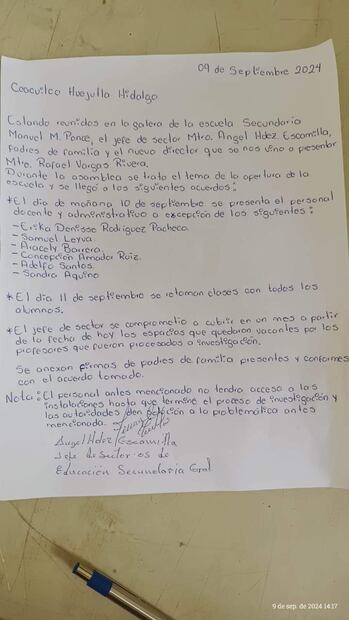 09 de Septiembre 2024
Coacuilco Huejutla Hidalgo
Estando reunidos en la galera de la escuela Secundaria
Manuel M. Ponce, el jefe de sector Mtro. Angel Hdez Escamilla,
Padres de familia y el nuevo director que se nos vino a presentar
Mtro. Rafael Vargas Rivera.
Durante la asamblea se trato el tema de la apertura de la
escuela y se llegó a los siguientes acuerdos:
*El día de mañana 10 de septiembre se presenta el personal
docente y administrativo a excepción de los siguientes:
-Erika Denisse Rodriguez Pacheco.
-Samuel Leyva.
-Aracely Barrera.
-Concepción Amador Ruiz.
-Adelfo Santos.
-Sandra Aquino
*El día 11 de septiembre se retoman clases con todos los
alumnos.
*El jefe de sector se comprometio a cubrir en un mes a partir
de la fecha de hoy los espacios que quedaron vacantes por los
profesores que fueron procesados a investigación.
Se anexan firmas de padres de familia presentes y conformes
con el acuerdo tomado.
Nota: El personal antes mencionado no tendra acceso a las
instalaciones hasta que termine el proceso de investigación y
las autoridades den solución a la problemática antes
mencionada.
Angel Hdez Escamilla
Jefe de Sector 05 de
Educación Secundaria Gral.
9 de sep. de 2024 14:17